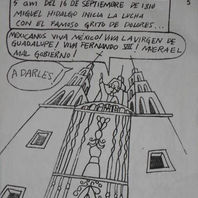 5 am DEL 16 DE SEPTIEMBRE DE 1810
MIGUEL HIDALGO INICIA LA LUCHA
CON EL FAMOSO GRITO DE DOLORES.
5
MEXICANOS VIVA MÉXICO! VIVA LA VIRGEN DE
GUADALUPE! VIVA FERNANDO VII! MUERA EL
MAL GOBIERNO!
A DARLES.